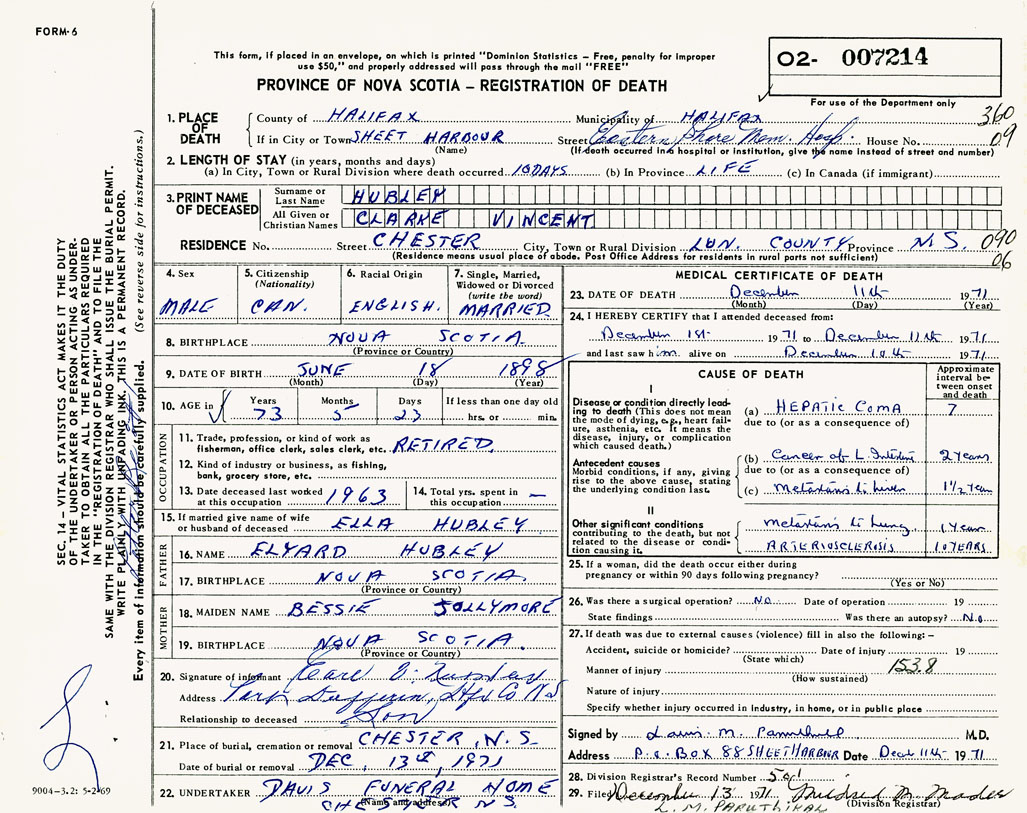 FORM-6
This form, if placed in an envelope, on which is printed "Dominion Statistics – Free, penalty for improper
use $50," and properly addressed will pass through the mail "FREE"
O2- 007214
For use of the Department only
PROVINCE OF NOVA SCOTIA – REGISTRATION OF DEATH
1. PLACE OF DEATH County of HALIFAX Municipality of HALIFAX 360
If in City or Town SHEET HARBOUR Street Eastern Shore Mem. Hosp. House No. 09
(Name) (If death occurred in a hospital or institution, give the name instead of street and number)
2. LENGTH OF STAY (in years, months and days)
(a) In City, Town or Rural Division where death occurred 10 DAYS (b) In Province LIFE (c) In Canada (if immigrant)
3. PRINT NAME OF DECEASED Surname or Last Name HUBLEY
All Given or Christian Names CLARKE VINCENT
RESIDENCE No. Street CHESTER City, Town or Rural Division LUN. COUNTY Province N.S. 090
(Residence means usual place of abode. Post Office Address for residents in rural parts not sufficient) 06
4. Sex MALE
5. Citizenship (Nationality) CAN.
6. Racial Origin ENGLISH.
7. Single, Married, Widowed or Divorced (write the word) MARRIED
8. BIRTHPLACE NOVA SCOTIA
(Province or Country)
9. DATE OF BIRTH JUNE 18 1898
(Month) (Day) (Year)
10. AGE in Years 73 Months 5 Days 23 If less than one day old hrs. or min.
OCCUPATION
11. Trade, profession, or kind of work as
fisherman, office clerk, sales clerk, etc. RETIRED.
12. Kind of industry or business, as fishing,
bank, grocery store, etc.
13. Date deceased last worked at this occupation 1963 14. Total yrs. spent in this occupation –
15. If married give name of wife or husband of deceased ELLA HUBLEY
FATHER
16. NAME ELYARD HUBLEY
17. BIRTHPLACE NOVA SCOTIA.
(Province or Country)
MOTHER
18. MAIDEN NAME BESSIE JOLLYMORE
19. BIRTHPLACE NOVA SCOTIA.
(Province or Country)
20. Signature of informant
Address Port Dufferin, Hfx Co. N.S
Relationship to deceased Son
21. Place of burial, cremation or removal CHESTER, N.S.
Date of burial or removal DEC, 13th, 1971
22. UNDERTAKER DAVIS FUNERAL HOME
(Name and address) CHESTER N.S.
MEDICAL CERTIFICATE OF DEATH
23. DATE OF DEATH December 11th 1971
(Month) (Day) (Year)
24. I HEREBY CERTIFY that I attended deceased from:
December 1st 1971 to December 11th 1971
and last saw him alive on December 10th 1971
CAUSE OF DEATH
Approximate interval between onset and death
I
Disease or condition directly leading to death (This does not mean the mode of dying, e.g., heart failure, asthenia, etc. It means the disease, injury, or complication which caused death.)
(a) HEPATIC COMA 7
due to (or as a consequence of)
Antecedent causes
Morbid conditions, if any, giving rise to the above cause, stating the underlying condition last.
(b) Cancer of L Intestine 2 Years
due to (or as a consequence of)
(c) Metastasis to Liver 1 1/2 Year
II
Other significant conditions contributing to the death, but not related to the disease or condition causing it.
Metastasis to Lung 1 Year
ARTERIOSCLEROSIS 10 YEARS
25. If a woman, did the death occur either during
pregnancy or within 90 days following pregnancy?
(Yes or No)
26. Was there a surgical operation? No Date of operation 19
State findings Was there an autopsy? No
27. If death was due to external causes (violence) fill in also the following: –
Accident, suicide or homicide? Date of injury 19
(State which)
Manner of injury 153.8
(How sustained)
Nature of injury
Specify whether injury occurred in industry, in home, or in public place
Signed by M.D.
Address P.O. BOX 88 SHEET HARBOUR Date Dec 11th 1971
28. Division Registrar's Record Number 501
29. Filed December 13 1971 Mildred M. Mader
(Division Registrar)
L. M. PARUTHIKAL
SEC. 14 – VITAL STATISTICS ACT MAKES IT THE DUTY
OF THE UNDERTAKER OR PERSON ACTING AS UNDER-
TAKER TO OBTAIN ALL THE PARTICULARS REQUIRED
IN THE "REGISTRATION OF DEATH" AND TO FILE THE
SAME WITH THE DIVISION REGISTRAR WHO SHALL ISSUE THE BURIAL PERMIT.
WRITE PLAINLY WITH UNFADING INK. THIS IS A PERMANENT RECORD.
Every item of information should be carefully supplied. (See reverse side for instructions.)
9004-3.2: 5-2-69